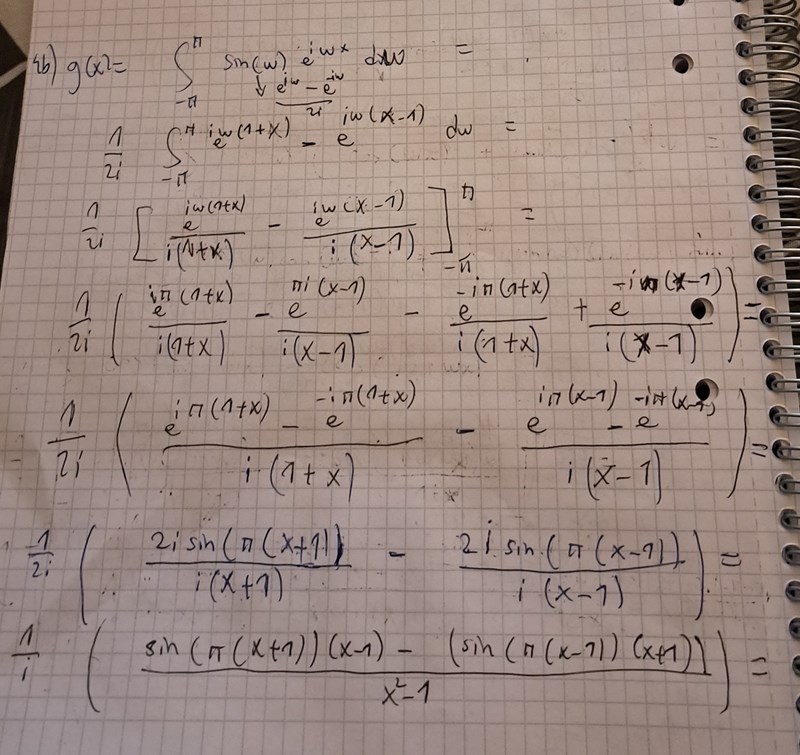 4b) g(x) = ∫_{-π}^{π} sin(w) e^{iwx} dw =
↓ (e^{iw} - e^{-iw})/2i
1/2i ∫_{-π}^{π} e^{iw(1+x)} - e^{iw(x-1)} dw =
1/2i [ e^{iw(1+x)}/i(1+x) - e^{iw(x-1)}/i(x-1) ]_{-π}^{π} =
1/2i ( e^{iπ(1+x)}/i(1+x) - e^{πi(x-1)}/i(x-1) - e^{-iπ(1+x)}/i(1+x) + e^{-iπ(x-1)}/i(x-1) ) =
1/2i ( (e^{iπ(1+x)} - e^{-iπ(1+x)})/i·(1+x) - (e^{iπ(x-1)} - e^{-iπ(x-1)})/i(x-1) ) =
1/2i ( 2i sin(π(x+1))/i(x+1) - 2i sin(π(x-1))/i(x-1) ) =
1/i ( (sin(π(x+1))(x-1) - (sin(π(x-1))(x+1)))/x²-1 ) =